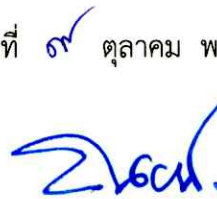 ที่ ๙ ตุลาคม พ